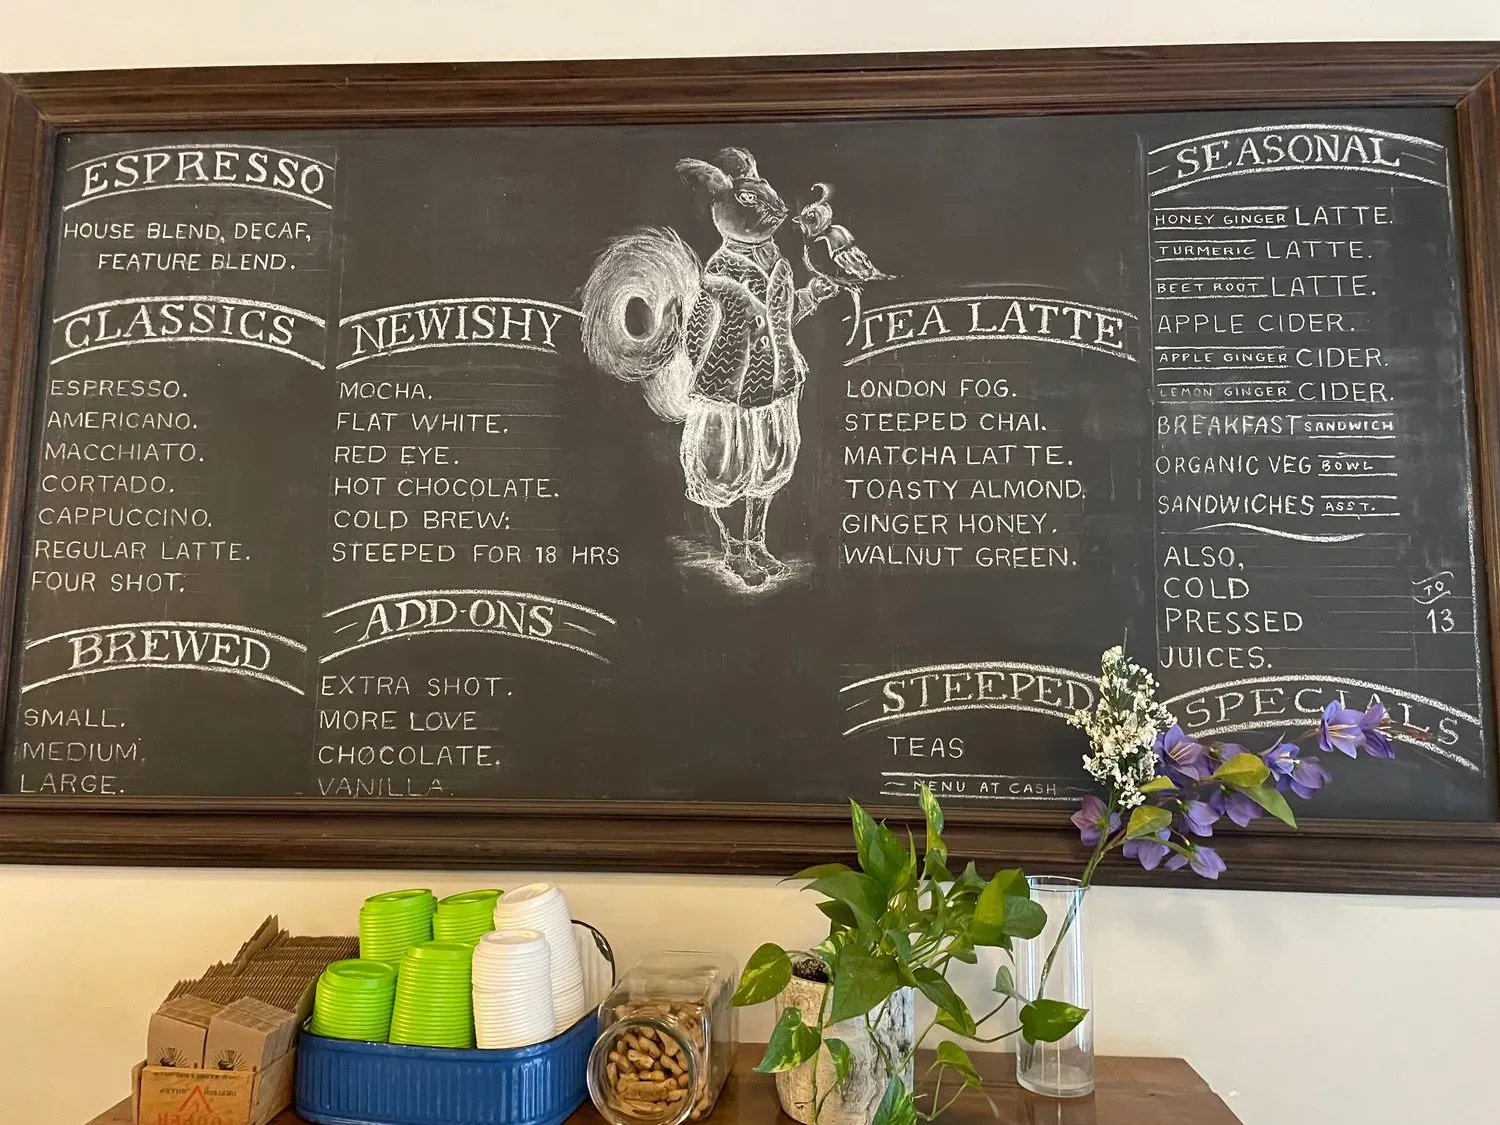 ESPRESSO
HOUSE BLEND, DECAF,
FEATURE BLEND.
CLASSICS
ESPRESSO.
AMERICANO.
MACCHIATO.
CORTADO.
CAPPUCCINO.
REGULAR LATTE.
FOUR SHOT.
BREWED
SMALL.
MEDIUM.
LARGE.
NEWISHY
MOCHA.
FLAT WHITE.
RED EYE.
HOT CHOCOLATE.
COLD BREW:
STEEPED FOR 18 HRS
ADD-ONS
EXTRA SHOT.
MORE LOVE
CHOCOLATE.
VANILLA.
TEA LATTE
LONDON FOG.
STEEPED CHAI.
MATCHA LATTE.
TOASTY ALMOND.
GINGER HONEY.
WALNUT GREEN.
STEEPED
TEAS
MENU AT CASH
SEASONAL
HONEY GINGER LATTE.
TURMERIC LATTE.
BEET ROOT LATTE.
APPLE CIDER.
APPLE GINGER CIDER.
LEMON GINGER CIDER.
BREAKFAST SANDWICH
ORGANIC VEG BOWL
SANDWICHES ASST.
ALSO,
COLD
PRESSED
JUICES.
TO
13
SPECIALS